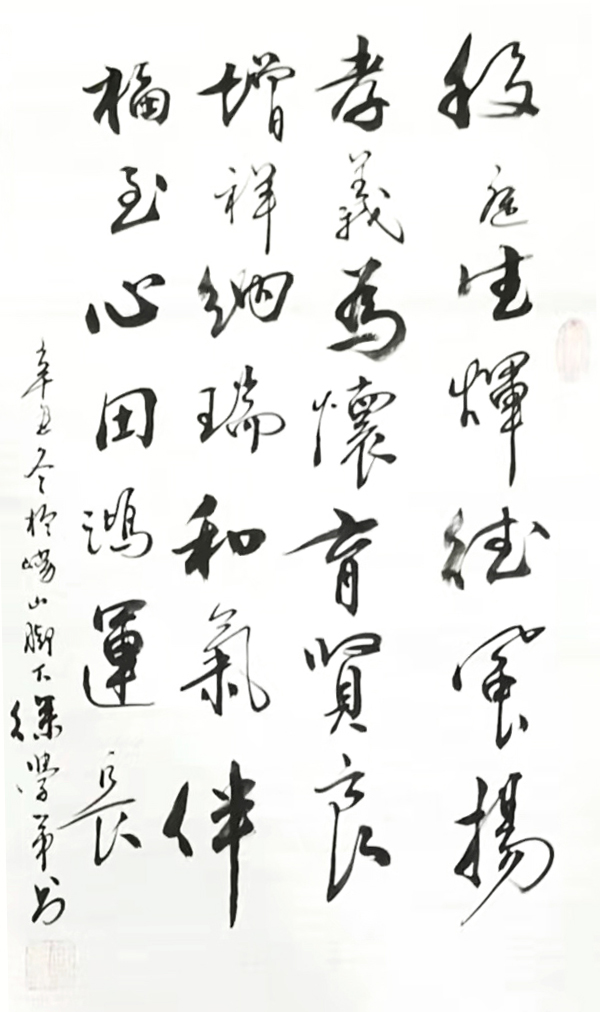 庭生輝德風揚
孝義為懷育賢良
增祥納瑞和氣伴
福至心田鴻運長
辛丑冬於嶗山腳下學華书